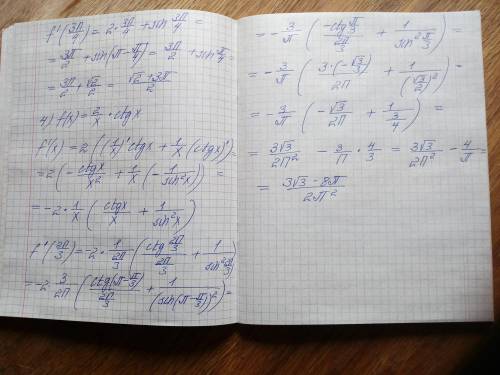 f'(3π/4) = 2·3π/4 + sin 3π/4 =
= 3π/2 + sin(π-π/4) = 3π/2 + sin π/4 =
= 3π/2 + √2/2 = (√2+3π)/2
4) f(x) = 2/x · ctgx
f'(x) = 2((1/x)' ctgx + 1/x (ctgx)') =
= 2(-ctgx/x² + 1/x (-1/sin²x)) =
= -2·1/x (ctgx/x + 1/sin²x)
f'(2π/3) = -2·1/(2π/3) (ctg 2π/3/(2π/3) + 1/sin² 2π/3) =
= -2·3/2π (ctg(π-π/3)/(2π/3) + 1/(sin(π-π/3))²) =
= -3/π (-ctg π/3/(2π/3) + 1/sin² π/3) =
= -3/π (3·(-√3/3)/2π + 1/(√3/2)²) =
= -3/π (-√3/2π + 1/(3/4)) =
= 3√3/2π² - 3/π · 4/3 = 3√3/2π² - 4/π =
= (3√3-8π)/2π²